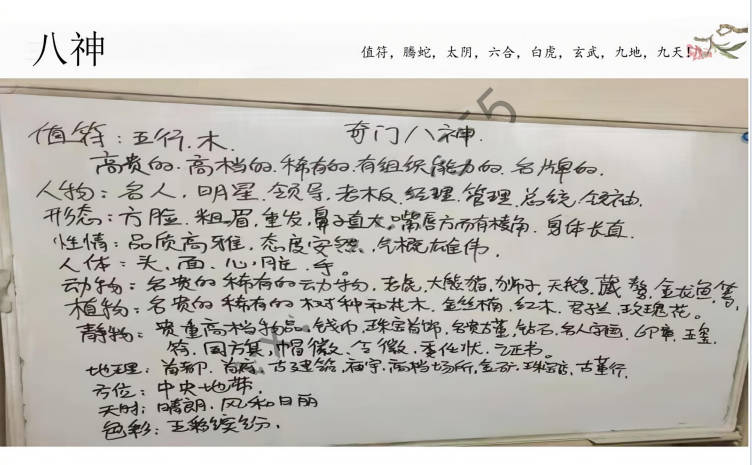 八神
值符，腾蛇，太阴，六合，白虎，玄武，九地，九天！
值符：五行.木.
奇门八神.
高贵的.高档的.稀有的.有组织能力的.名牌的.
人物：名人，明星.领导，老板.经理.管理.总统.领袖.
形态：方脸.粗眉，重发，鼻子直大，嘴唇方而有棱角.身体长直.
性情：品质高雅，态度安然，气概雄伟.
人体：头、面、心脏、手。
动物：名贵的稀有的动物，老虎，大熊猫，狮子，天鹅，藏獒，金龙鱼等.
植物：名贵的稀有的树种和花木.金丝楠，红木.君子兰，玫瑰花。
静物：贵重高档物品.钱币.珠宝首饰.名贵古董，钻石.名人字画.印章，玉玺
符，国方旗，帽徽、令徽，委任状、证书。
地理：首都，首府，古建筑.庙宇.高档场所，金矿.珠宝店，古董行.
方位：中央地带.
天时：晴朗.风和日丽
色彩：五彩缤纷.